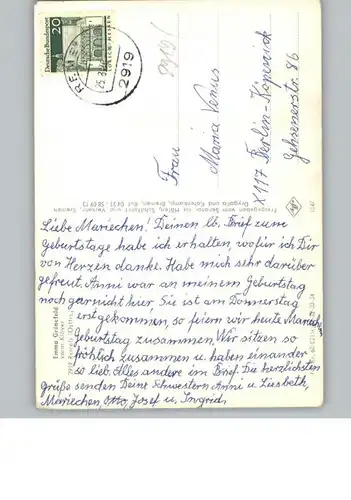 Liebe Mariechen! Deinen lb. Brief zum
Geburtstage habe ich erhalten, wofür ich Dir
von Herzen danke. Habe mich sehr darüber
gefreut. Anni war an meinem Geburtstag
noch garnicht hier. Sie ist am Donnerstag
erst gekommen, so feiern wir heute Mariech.
Geburtstag zusammen. Wir sitzen so
fröhlich zusammen u. haben einander
so lieb. Alles andere im Brief. Die herzlichsten
grüße senden Deine Schwestern Anni u. Liesbeth,
Mariechen, Otto, Josef u. Ingrid.
Deutsche Bundespost
20
2919
2919
Frau
Maria Venus
X 117 Berlin-Köpenick
Gehsenerstr. 86
Freigegeben vom Senator für Häfen, Schiffahrt und Verkehr, Bremen